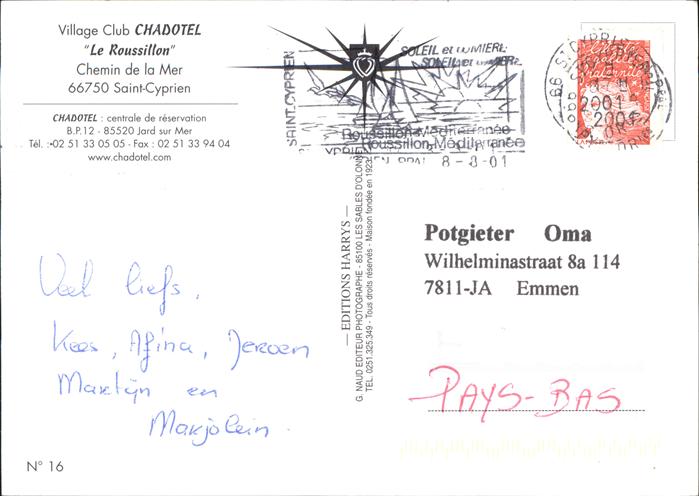 Village Club CHADOTEL
"Le Roussillon"
Chemin de la Mer
66750 Saint-Cyprien
CHADOTEL : centrale de réservation
B.P.12 - 85520 Jard sur Mer
Tél. : 02 51 33 05 05 - Fax : 02 51 33 94 04
www.chadotel.com
SAINT-CYPRIEN
SOLEIL et LUMIERE
SOLEIL et LUMIERE
Roussillon-Méditerranée
Roussillon-Méditerranée
8-8-01
66 ST CYPRIEN
2001
2001
EDITIONS HARRYS
G. NAUD EDITEUR PHOTOGRAPHE - 85100 LES SABLES D'OLONNE
TEL. 0251.325.349 - Tous droits réservés - Maison fondée en 1923
Potgieter Oma
Wilhelminastraat 8a 114
7811-JA Emmen
PAYS-BAS
Veel liefs,
Kees, Afina, Jeroen
Martijn en
Marjolein
N° 16